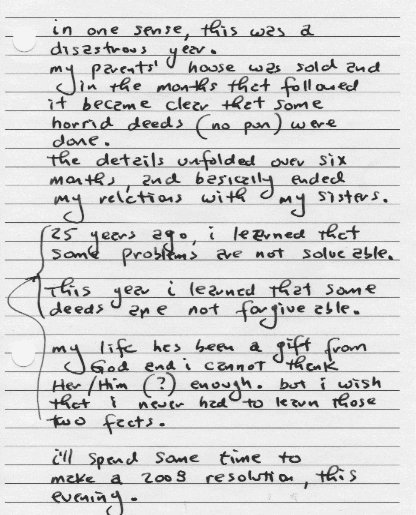 in one sense, this was a
disastrous year.
my parents' house was sold and
in the months that followed
it became clear that some
horrid deeds (no pun) were
done.
the details unfolded over six
months, and basically ended
my relations with my sisters.
25 years ago, i learned that
some problems are not solve able.
this year i learned that some
deeds are not forgive able.
my life has been a gift from
God and i cannot thank
Her/Him (?) enough. but i wish
that i never had to learn those
two facts.
i'll spend some time to
make a 2009 resolution, this
evening.